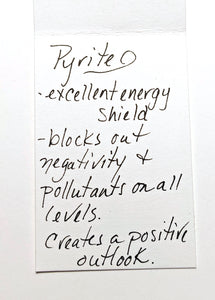 Pyrite
• excellent energy
shield
- blocks out
negativity &
pollutants on all
levels.
Creates a positive
outlook.